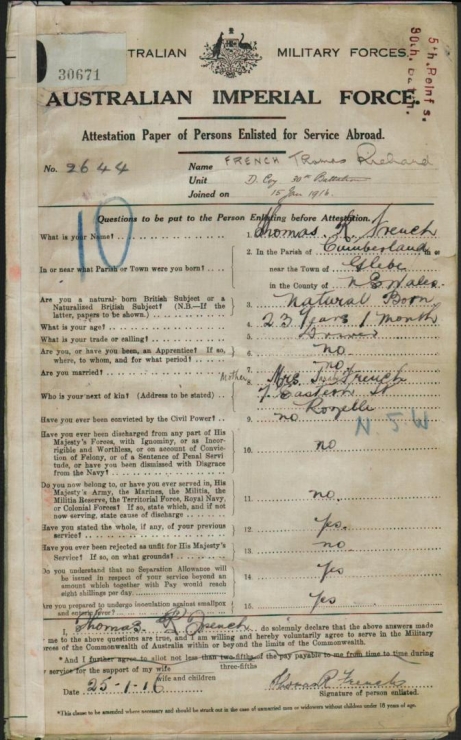 30671
TRALIAN MILITARY FORCES.
5th. Reinfs.
30th. Battn.
AUSTRALIAN IMPERIAL FORCE.
Attestation Paper of Persons Enlisted for Service Abroad.
No. 2644
Name FRENCH Thomas Richard
Unit D. Coy 30th Battalion
Joined on 15 Jan 1916.
10
Questions to be put to the Person Enlisting before Attestation.
What is your Name? 1. Thomas. R. French
In or near what Parish or Town were you born? 2. In the Parish of Cumberland in or
near the Town of Glebe
in the County of N S Wales
Are you a natural-born British Subject or a
Naturalised British Subject? (N.B.—If the
latter, papers to be shown) 3. Natural Born
What is your age? 4. 23 years 1 month
What is your trade or calling? 5.
Are you, or have you been, an Apprentice? If so,
where, to whom, and for what period? 6. no.
Are you married? 7. no
Who is your next of kin? (Address to be stated) Mother 8. Mrs. French
7 St
Rozelle
N.S.W
Have you ever been convicted by the Civil Power? 9. no
Have you ever been discharged from any part of His
Majesty's Forces, with Ignominy, or as Incor-
rigible and Worthless, or on account of Convic-
tion of Felony, or of a Sentence of Penal Servi-
tude, or have you been dismissed with Disgrace
from the Navy? 10. no
Do you now belong to, or have you ever served in, His
Majesty's Army, the Marines, the Militia, the
Militia Reserve, the Territorial Force, Royal Navy,
or Colonial Forces? If so, state which, and if not
now serving, state cause of discharge 11. no.
Have you stated the whole, if any, of your previous
service? 12. yes.
Have you ever been rejected as unfit for His Majesty's
Service? If so, on what grounds? 13. no
Do you understand that no Separation Allowance will
be issued in respect of your service beyond an
amount which together with Pay would reach
eight shillings per day 14. yes
Are you prepared to undergo inoculation against smallpox
and enteric fever? 15. yes
I, Thomas R French, do solemnly declare that the above answers made
me to the above questions are true, and I am willing and hereby voluntarily agree to serve in the Military
rces of the Commonwealth of Australia within or beyond the limits of the Commonwealth.
*And I further agree to allot not less than two-fifths of the pay payable to me from time to time during
three-fifths
service for the support of my wife
wife and children
Date 25-1-16 Thomas R French
Signature of person enlisted.
*This clause to be amended where necessary and should be struck out in the case of unmarried men or widowers without children under 18 years of age.